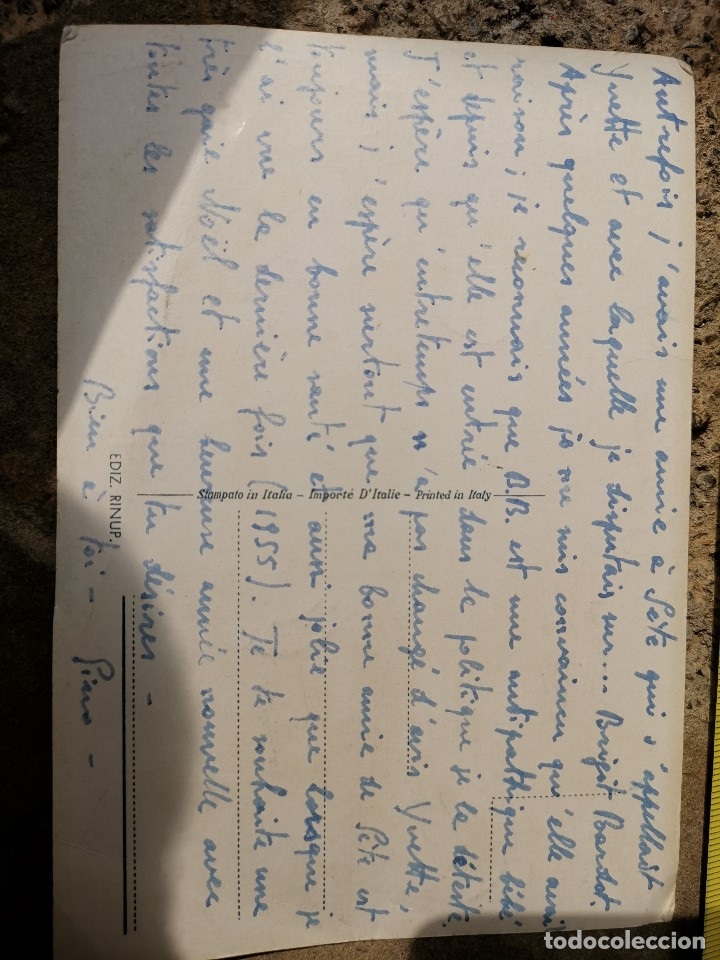 Autrefois j'avais une amie à Sète qui s'appellait
Yvette et avec laquelle je disputais sur... Brigit Bardot.
Après quelques années je me suis convaincu qu'elle avait
raison; je reconnais que B.B. est une antipathique bébé
et depuis qu'elle est entrée dans la politique je la déteste.
J'espère qu'entretemps n'a pas changé d'avis Yvette,
mais j'espère surtout que ma bonne amie de Sète est
toujours en bonne santé et aussi jolie que lorsque je
l'ai vue la dernière fois (1955). Je te souhaite une
très gaie Noël et une heureuse année nouvelle avec
toutes les satisfactions que tu désires -
Bien à toi - Pino -
Stampato in Italia - Importé D'Italie - Printed in Italy
EDIZ. RINUP.
todocoleccion